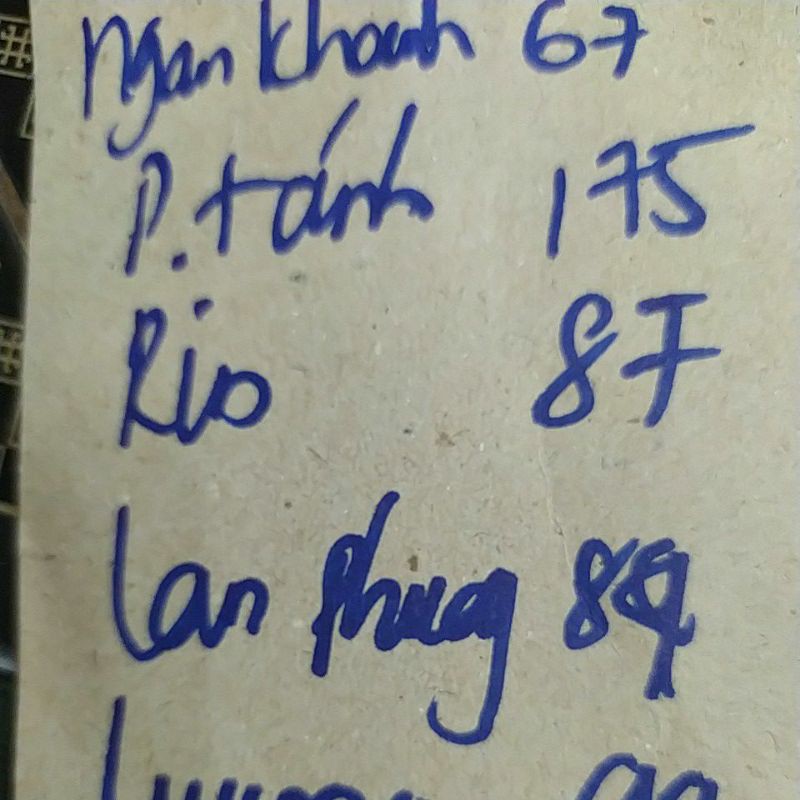 Ngan Khanh 67
P. tánh 175
Rio 87
Lan Phung